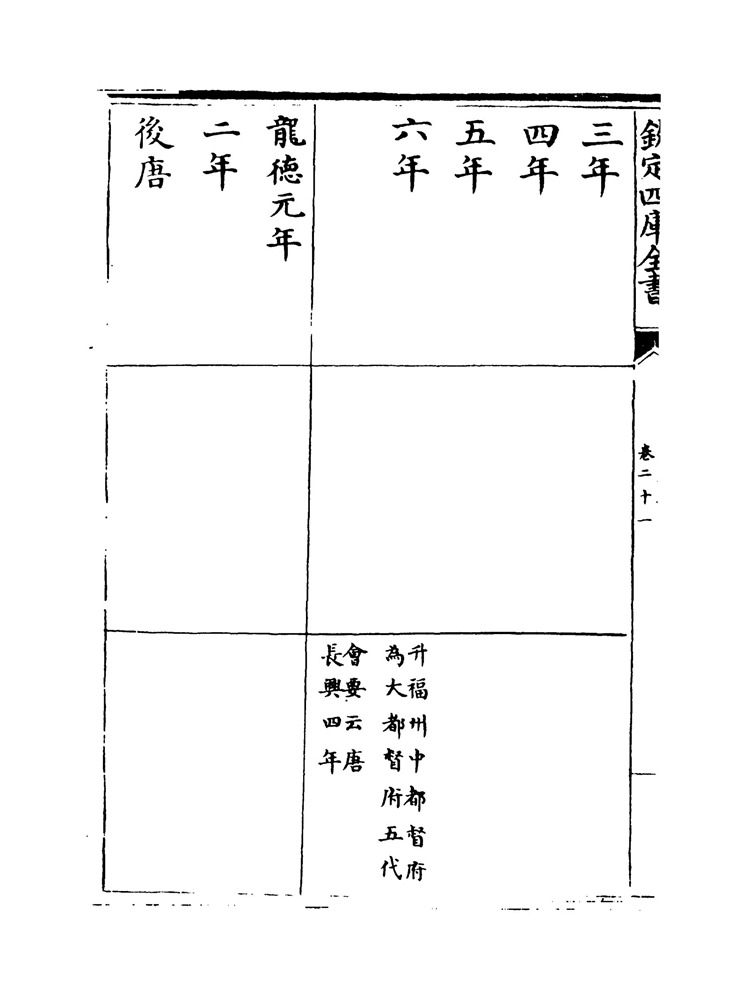 欽定四庫全書
卷二十一
三年
四年
五年
六年
升福州中都督府
為大都督府五代
會要云唐
長興四年
龍徳元年
二年
後唐